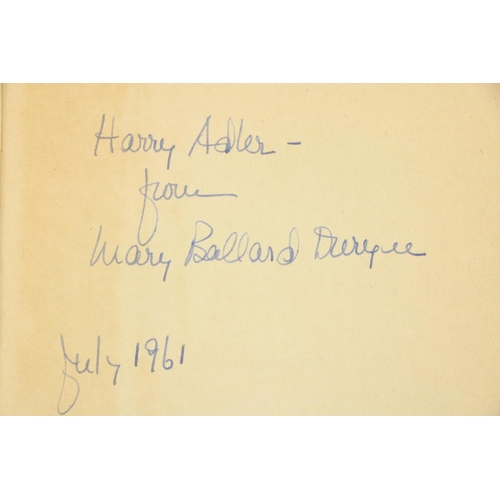 Harry Adler -
from
Mary Ballard Duryee
July 1961